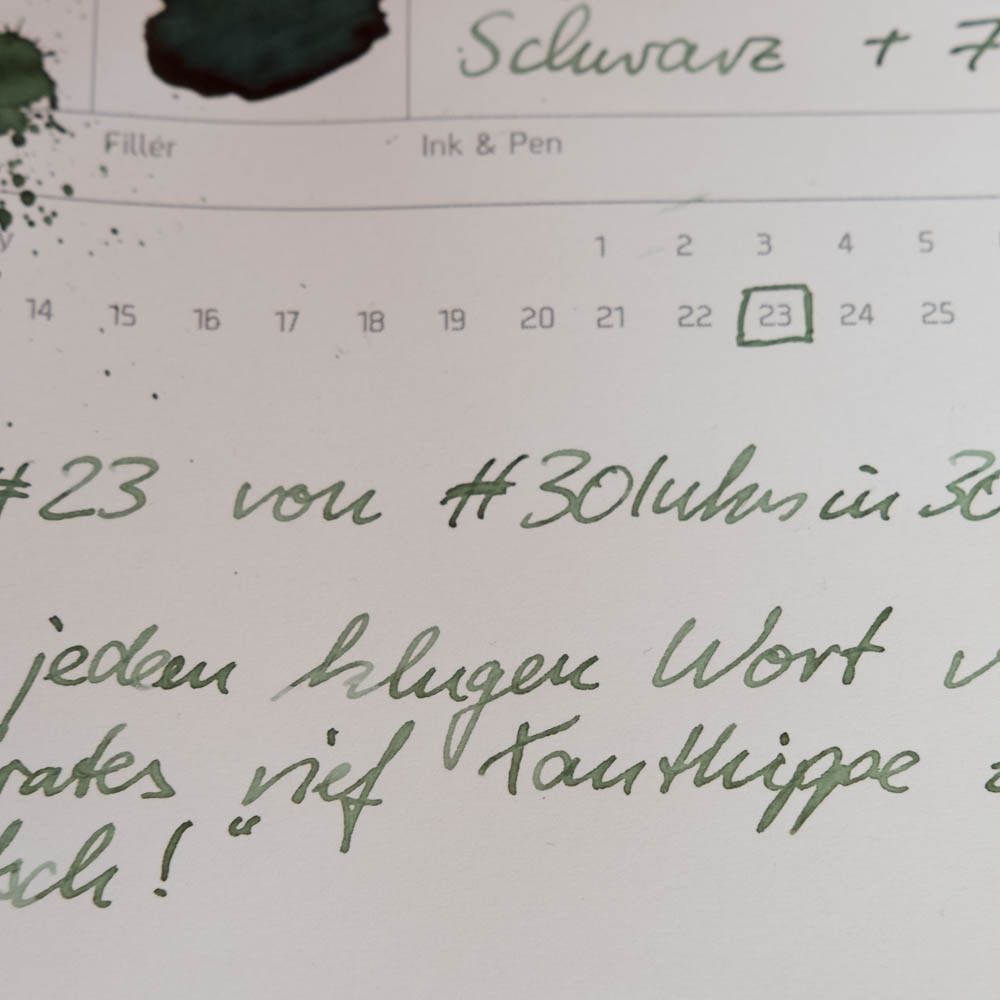 Schwarz + 7
Filler Ink & Pen
y 1 2 3 4 5
14 15 16 17 18 19 20 21 22 23 24 25
#23 von #30inks in 30
jedem klugen Wort v
rates rief Xanthippe
sch!"